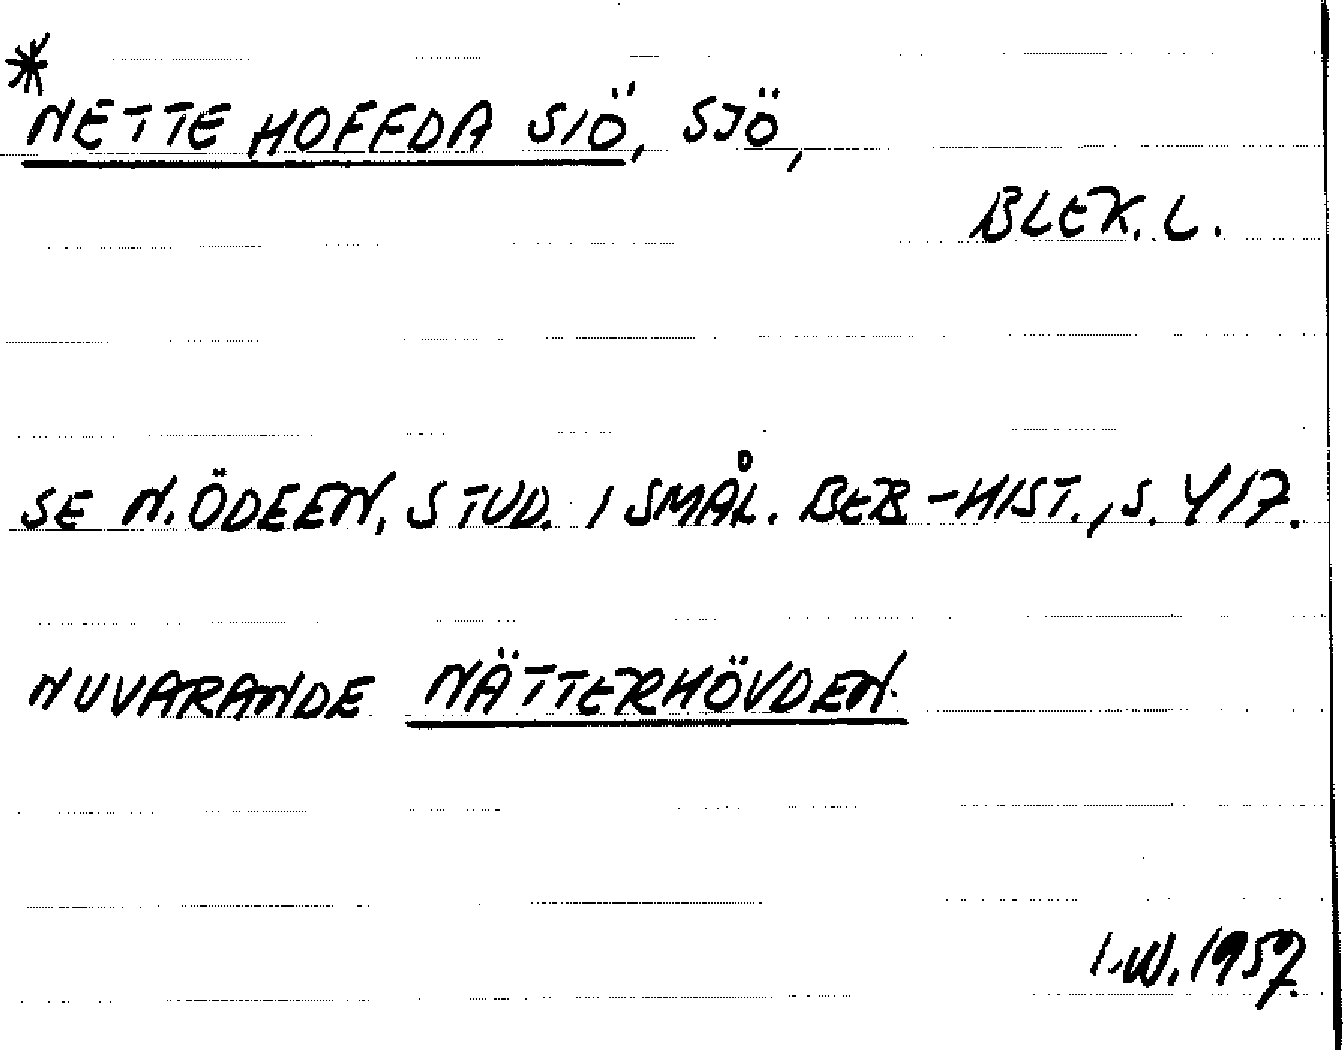 *
NETTE HOFFDA SIÖ, SJÖ,
BLEK. L.
SE N. ÖDEEN, STUD. I SMÅL. BEB-HIST., S. 417.
NUVARANDE NÄTTERHÖVDEN.
I.W. 1957.